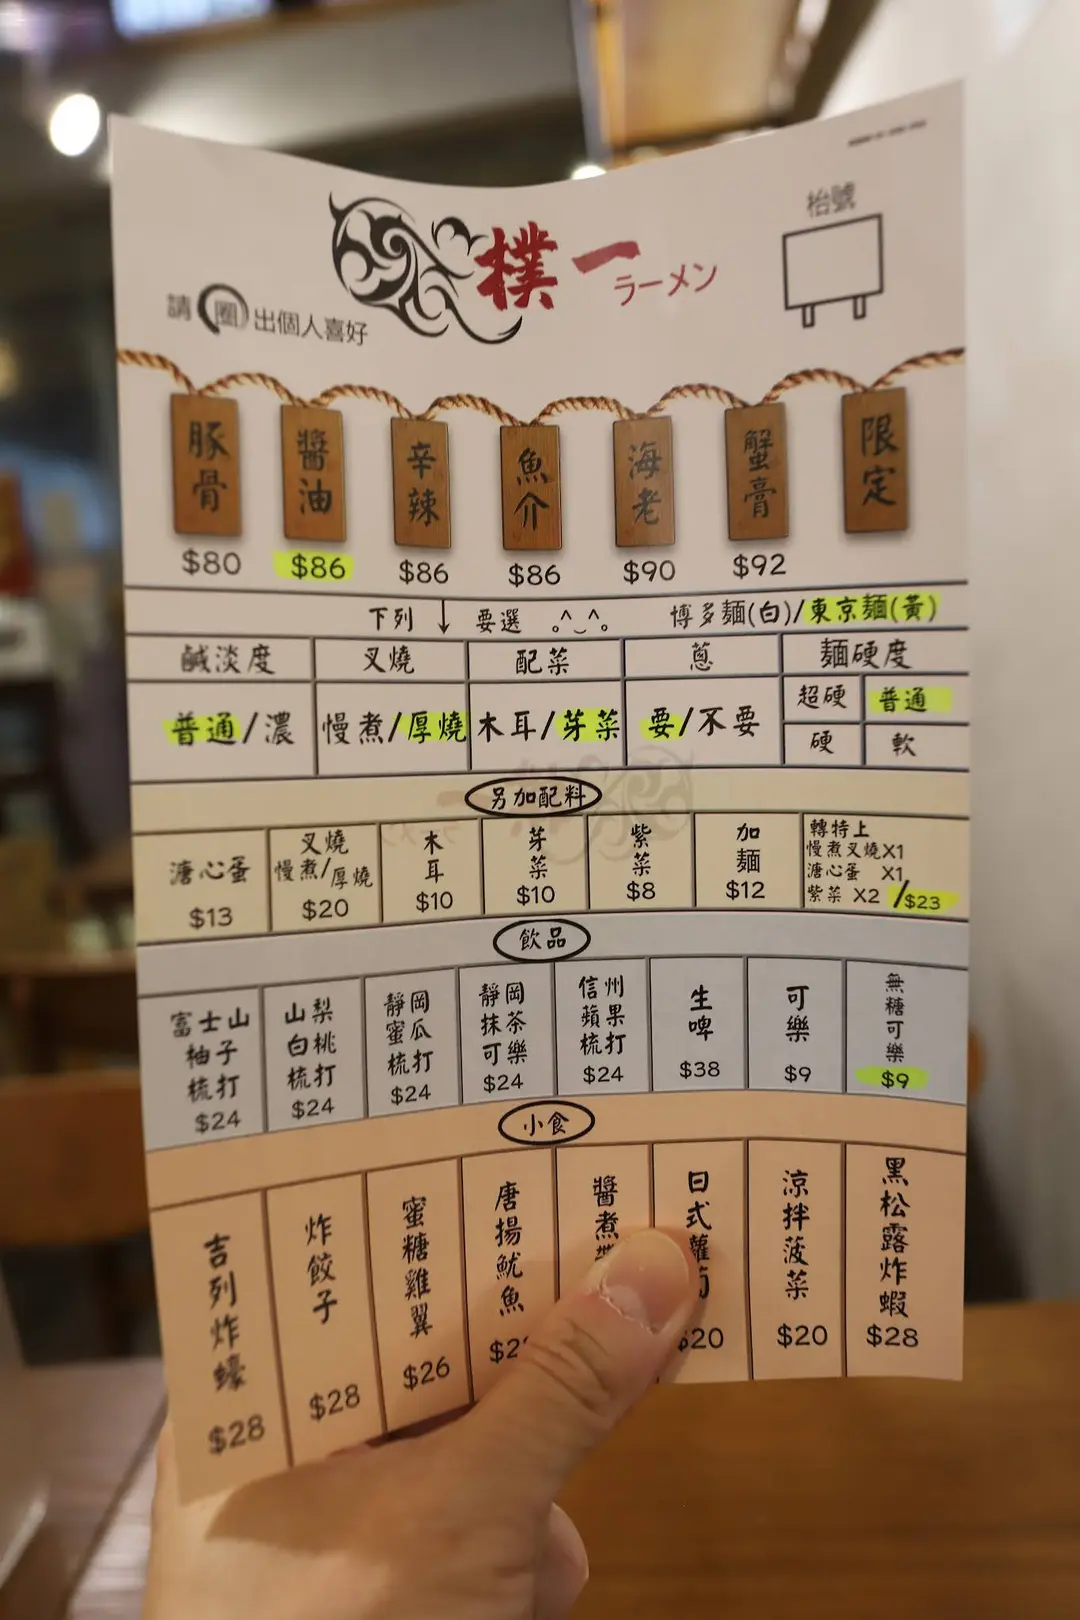 枱號
樸一
ラーメン
請圈出個人喜好
豚骨 醬油 辛辣 魚介 海老 蟹膏 限定
$80 $86 $86 $86 $90 $92
下列↓要選 博多麵(白)/東京麵(黃)
鹹淡度 叉燒 配菜 蔥 麵硬度
普通/濃 慢煮/厚燒 木耳/芽菜 要/不要
超硬 普通
硬 軟
另加配料
溏心蛋 $13
叉燒 慢煮/厚燒 $20
木耳 $10
芽菜 $10
紫菜 $8
加麵 $12
轉特上
慢煮叉燒X1
溏心蛋 X1
紫菜 X2 /$23
飲品
富士山柚子梳打 $24
山梨白桃梳打 $24
靜岡蜜瓜梳打 $24
靜岡抹茶可樂 $24
信州蘋果梳打 $24
生啤 $38
可樂 $9
無糖可樂 $9
小食
吉列炸蠔 $28
炸餃子 $28
蜜糖雞翼 $26
唐揚魷魚
醬煮
日式蘿蔔 $20
涼拌菠菜 $20
黑松露炸蝦 $28